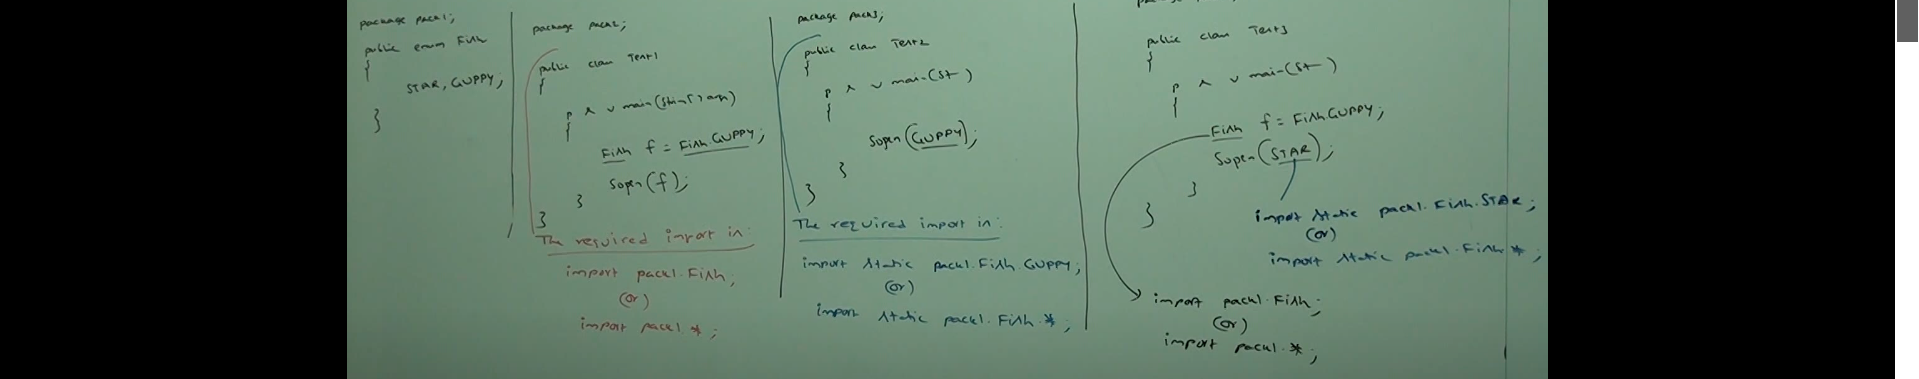 package pack1;
public enum Fish
{
STAR, GUPPY;
}
package pack2;
public class Test1
{
p s v main(String[] args)
{
Fish f = Fish.GUPPY;
Sopln(f);
}
}
The required import is:
import pack1.Fish;
(or)
import pack1.*;
package pack3;
public class Test2
{
p s v main(St )
{
Sopln(GUPPY);
}
}
The required import is:
import static pack1.Fish.GUPPY;
(or)
import static pack1.Fish.*;
public class Test3
{
p s v main(St )
{
Fish f = Fish.GUPPY;
Sopln(STAR);
}
}
import static pack1.Fish.STAR;
(or)
import static pack1.Fish.*;
import pack1.Fish;
(or)
import pack1.*;